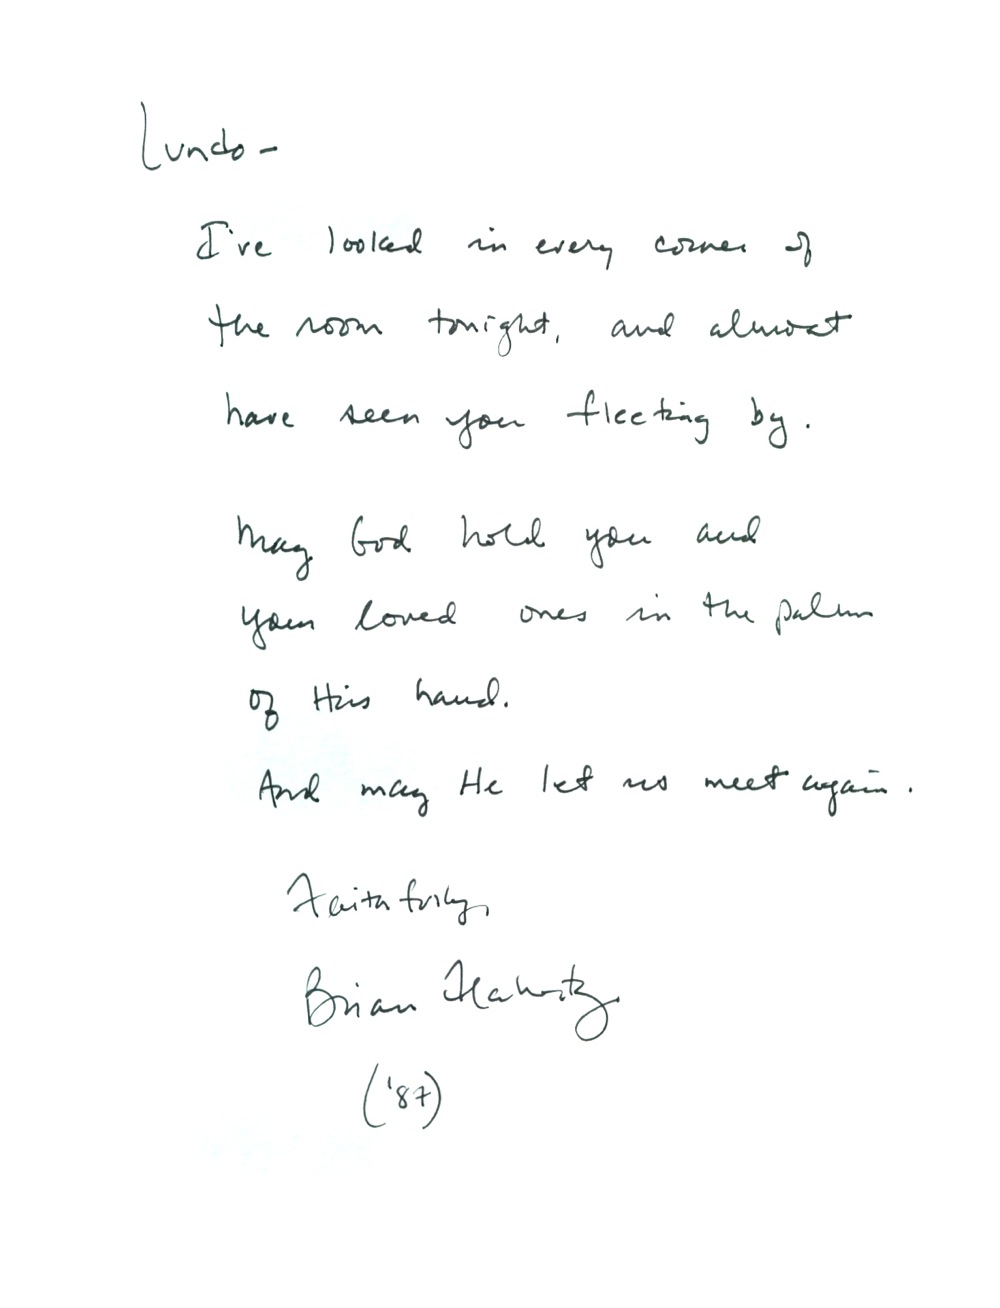 Lundo -
I've looked in every corner of
the room tonight, and almost
have seen you fleeting by.
May God hold you and
your loved ones in the palm
of His hand.
And may He let us meet again.
Faithfully,
Brian
('87)